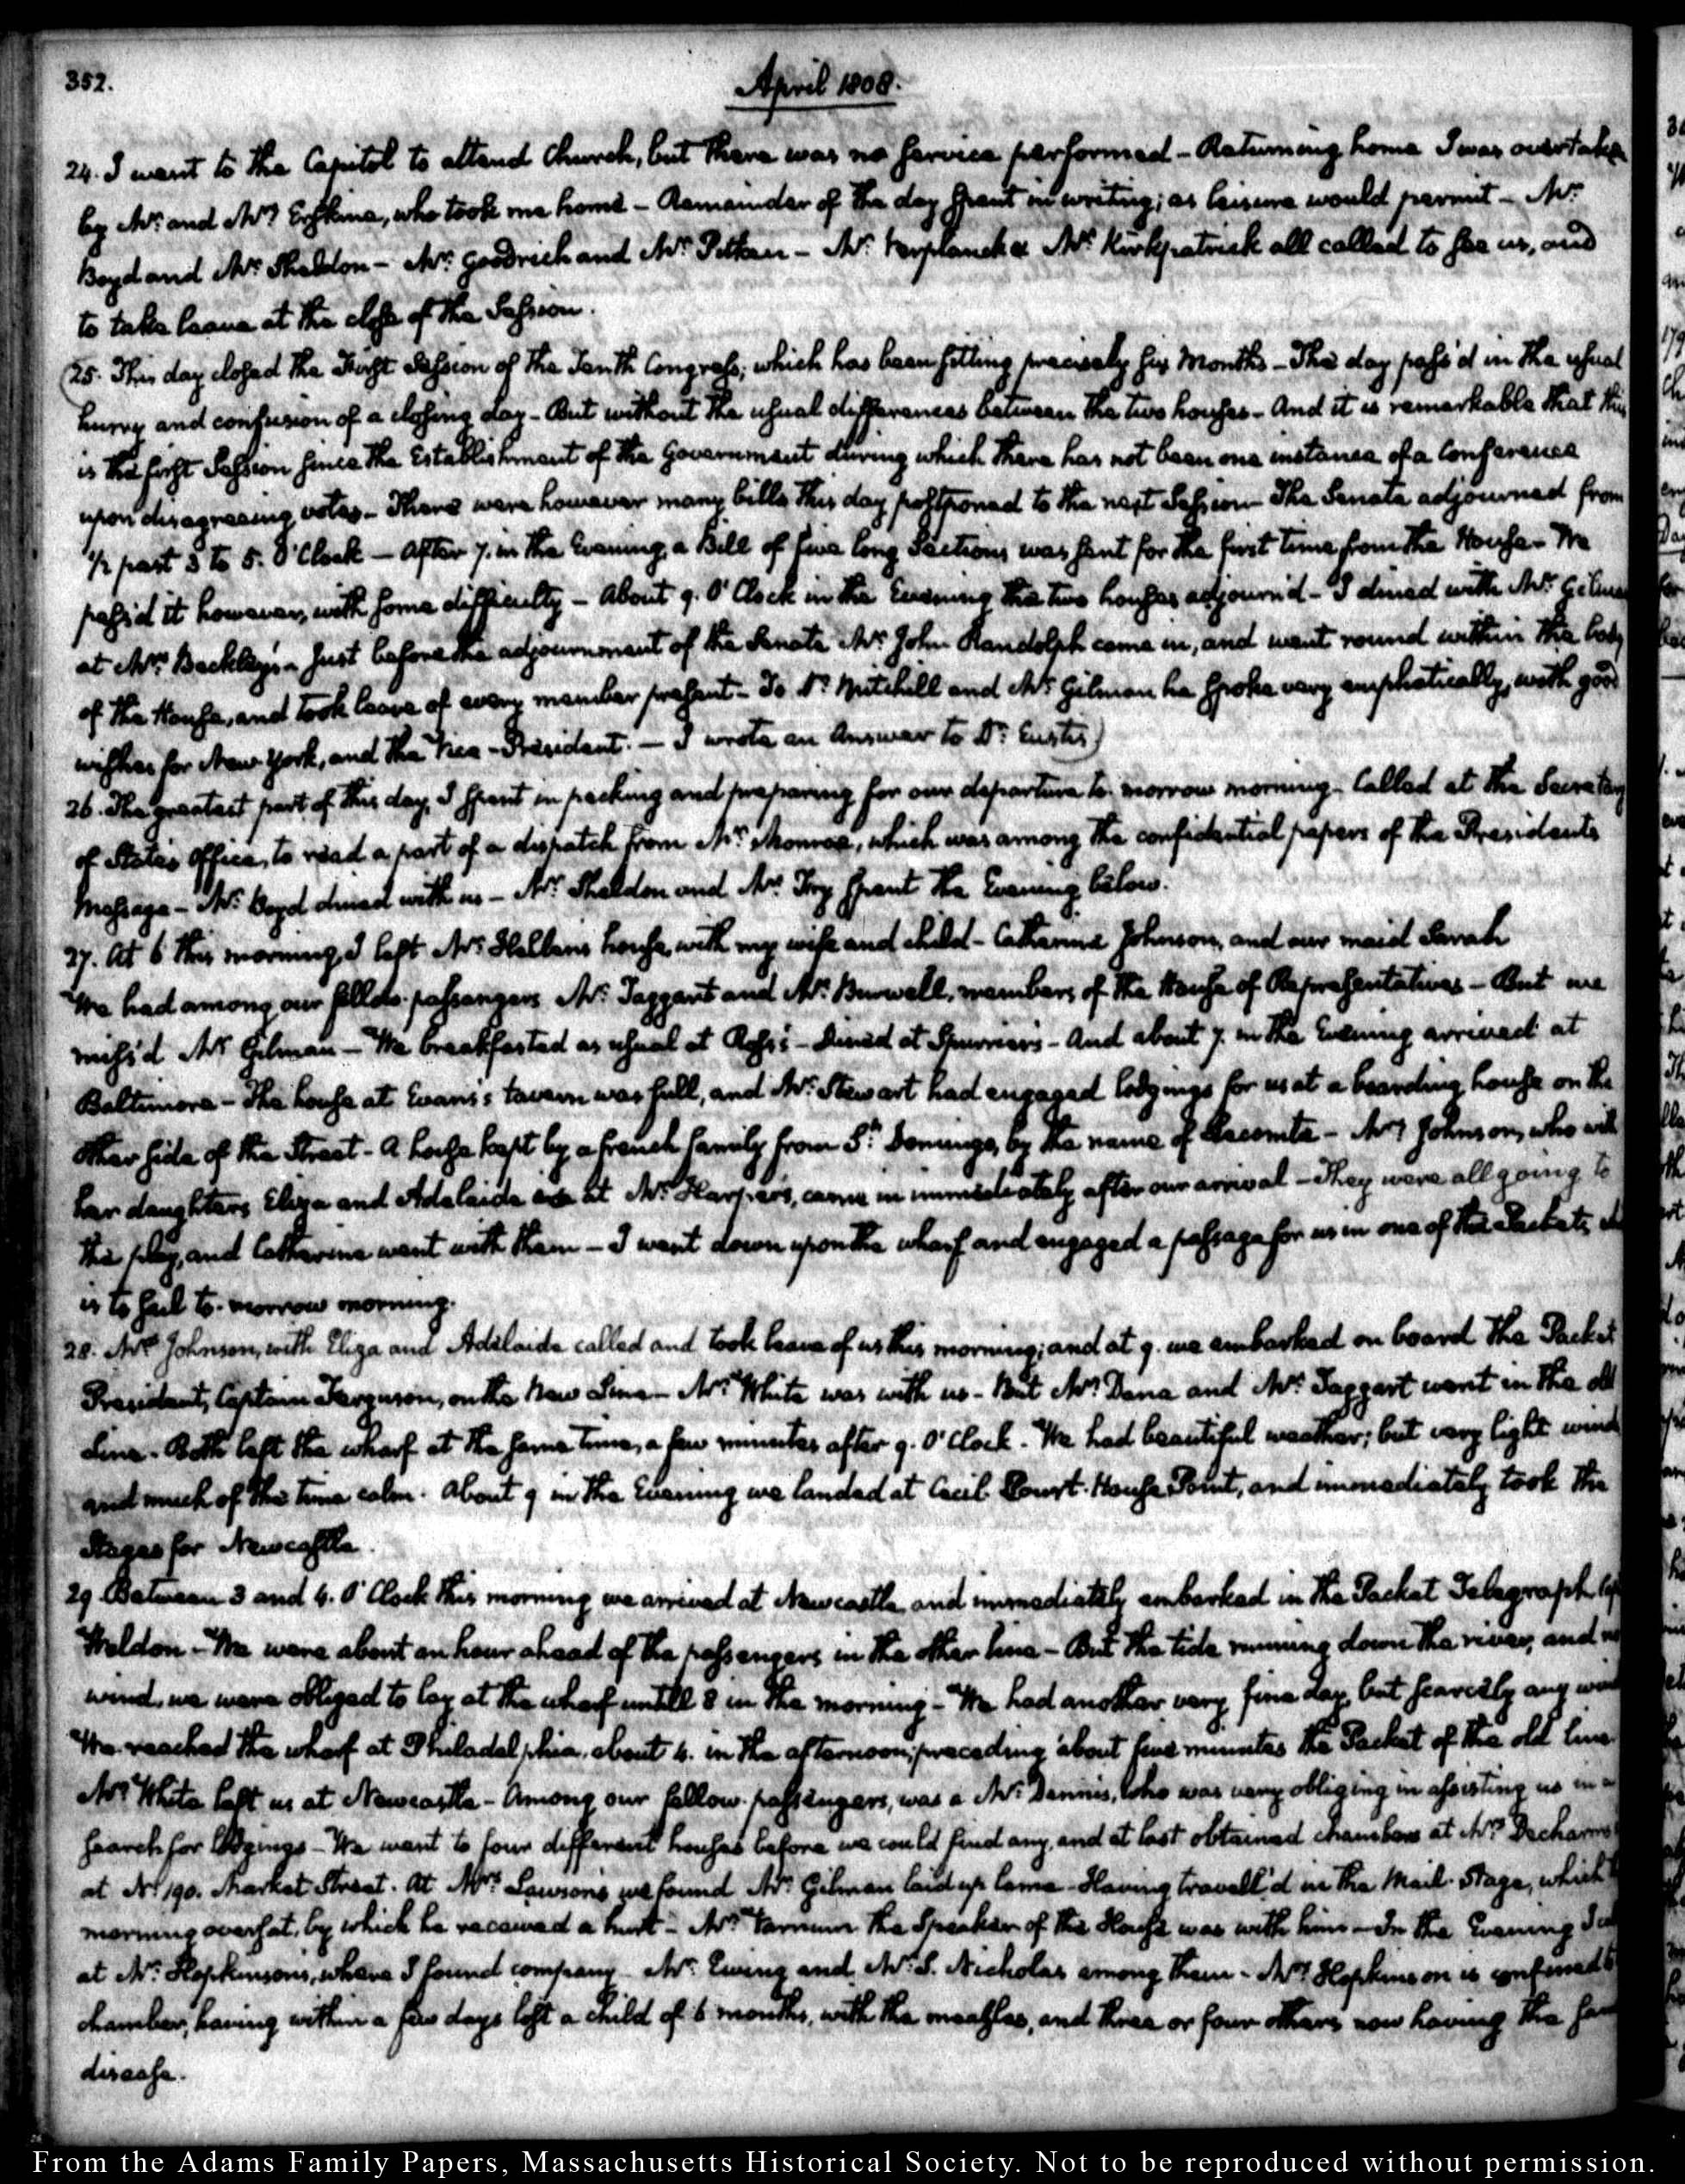 352.
April 1808.
24. I went to the Capitol to attend Church, but there was no service performed - Returning home I was overtaken
by Mr. and Mrs. Erskine, who took me home - Remainder of the day spent in writing; as leisure would permit - Mr.
Boyd and Mr. Sheldon - Mr. Goodrich and Mr. Pitkin - Mr. Verplanck & Mr. Kirkpatrick all called to see us, and
to take leave at the close of the Session.
25. This day closed the First Session of the Tenth Congress; which has been sitting precisely six Months - The day pass'd in the usual
hurry and confusion of a closing day - But without the usual differences between the two houses - And it is remarkable that this
is the first Session since the Establishment of the Government during which there has not been one instance of a Conference
upon disagreeing votes - There were however many bills this day postponed to the next Session - The Senate adjourned from
1/2 past 3 to 5. O'Clock - After 7. in the Evening, a Bill of five long Sections was sent for the first time from the House - We
pass'd it however, with some difficulty - About 9. O'Clock in the Evening the two houses adjourn'd - I dined with Mr. Gilman
at Mrs. Beckley's - Just before the adjournment of the Senate Mr. John Randolph came in, and went round within the body
of the House, and took leave of every member present - To Dr. Mitchill and Mr. Gilman he spoke very emphatically, with good
wishes for New-York, and the Vice-President. - I wrote an Answer to Dr. Eustis)
26. The greatest part of this day, I spent in packing and preparing for our departure to-morrow morning - Called at the Secretary
of State's Office, to read a part of a dispatch from Mr. Monroe, which was among the confidential papers of the Presidents
Message - Mr. Boyd dined with us - Mr. Sheldon and Mr. Ivy spent the Evening below.
27. At 6 this morning, I left Mr. Hellens house, with my wife and child - Catherine Johnson, and our maid Sarah
We had among our fellow-passengers Mr. Taggart and Mr. Burwell, members of the House of Representatives - But we
miss'd Mr. Gilman - We breakfasted as usual at Ross's - Dined at Spurriers - And about 7. in the Evening arrived at
Baltimore - The house at Evans's tavern was full, and Mr. Stewart had engaged lodgings for us at a boarding house on the
other side of the Street - A house kept by a french family from St. Domingo, by the name of Lacomte - Mrs. Johnson, who with
her daughters Eliza and Adelaide are at Mr. Harper's, came in immediately after our arrival - They were all going to
the play, and Catherine went with them - I went down upon the wharf and engaged a passage for us in one of the Packets
is to sail to-morrow morning.
28. Mrs. Johnson, with Eliza and Adelaide called and took leave of us this morning; and at 9. we embarked on board the Packet
President, Captain Ferguson, on the New Line - Mrs. White was with us - But Mr. Dana and Mr. Taggart went in the old
Line - Both left the wharf at the same time, a few minutes after 9. O'Clock. We had beautiful weather; but very light wind
and much of the time calm. About 9 in the Evening we landed at Cecil Court-House Point, and immediately took the
Stages for Newcastle.
29. Between 3 and 4. O'Clock this morning we arrived at Newcastle, and immediately embarked in the Packet Telegraph
Weldon - We were about an hour ahead of the passengers in the other line - But the tide running down the river, and no
wind, we were obliged to lay at the wharf untill 8 in the morning - We had another very fine day, but scarcely any wind
We reached the wharf at Philadelphia, about 4. in the afternoon, preceding about five minutes the Packet of the old line
Mrs. White left us at Newcastle - Among our fellow-passengers, was a Mr. Dennis, who was very obliging in assisting us in a
search for lodgings - We went to four different houses before we could find any, and at last obtained chambers at Mrs.
at No. 190. Market Street. At Mrs. Lawson's we found Mr. Gilman laid up lame - Having travell'd in the Mail-Stage, which
morning overset, by which he received a hurt - Mr. Varnum the Speaker of the House was with him - In the Evening I
at Mr. Hopkinson's, where I found company - Mr. Ewing and Mr. S. Nicholas among them - Mrs. Hopkinson is confined to
chamber, having within a few days lost a child of 6 months, with the measles, and three or four others now having the same
disease.
From the Adams Family Papers, Massachusetts Historical Society. Not to be reproduced without permission.